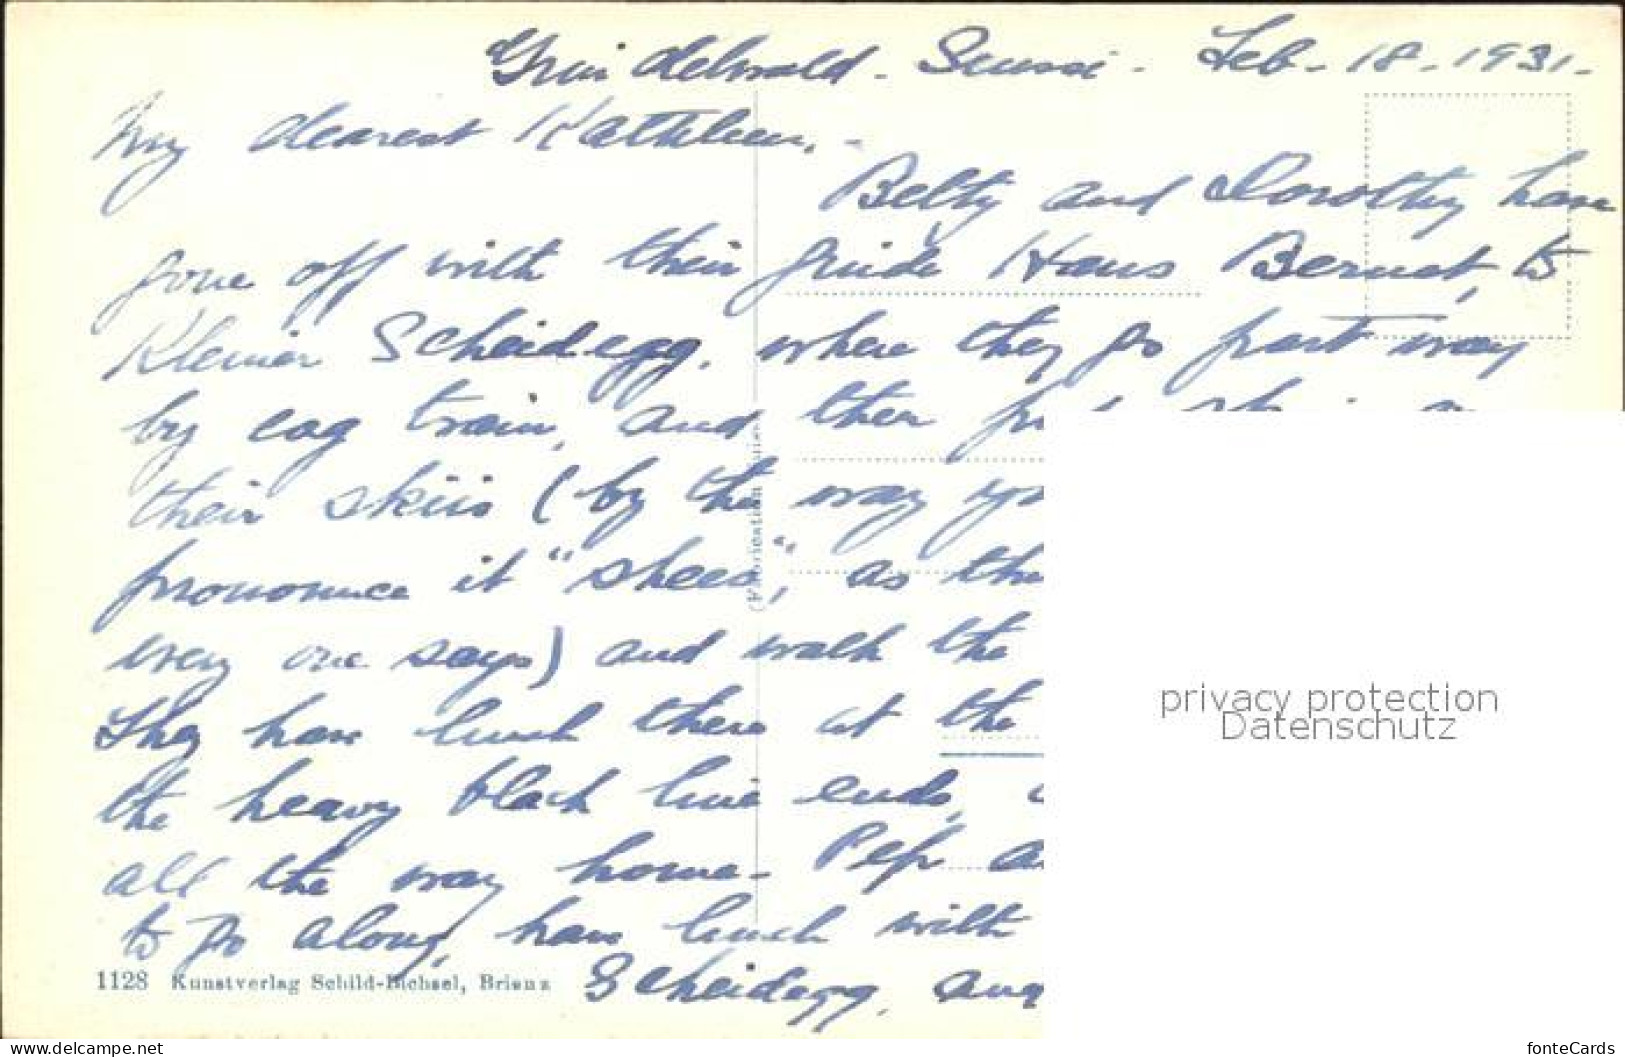 Grindelwald - Suisse - Feb - 18 - 1931 -
My dearest Kathleen, -
Betty and Dorothy have
gone off with their guide Hans Bernet, to
Kleiner Scheidegg, where they go part way
by cog train, and then
their skiis (by the way
pronounce it "shees", as the
every one says) and walk the
They have lunch there at the
the heavy black line ends,
all the way home - Pep
to go along, have lunch with
Scheidegg,
(Fabrication Suisse)
1128 Kunstverlag Schild-Bichsel, Brienz
privacy protection
Datenschutz
https://www.delcampe.net
fonteCards